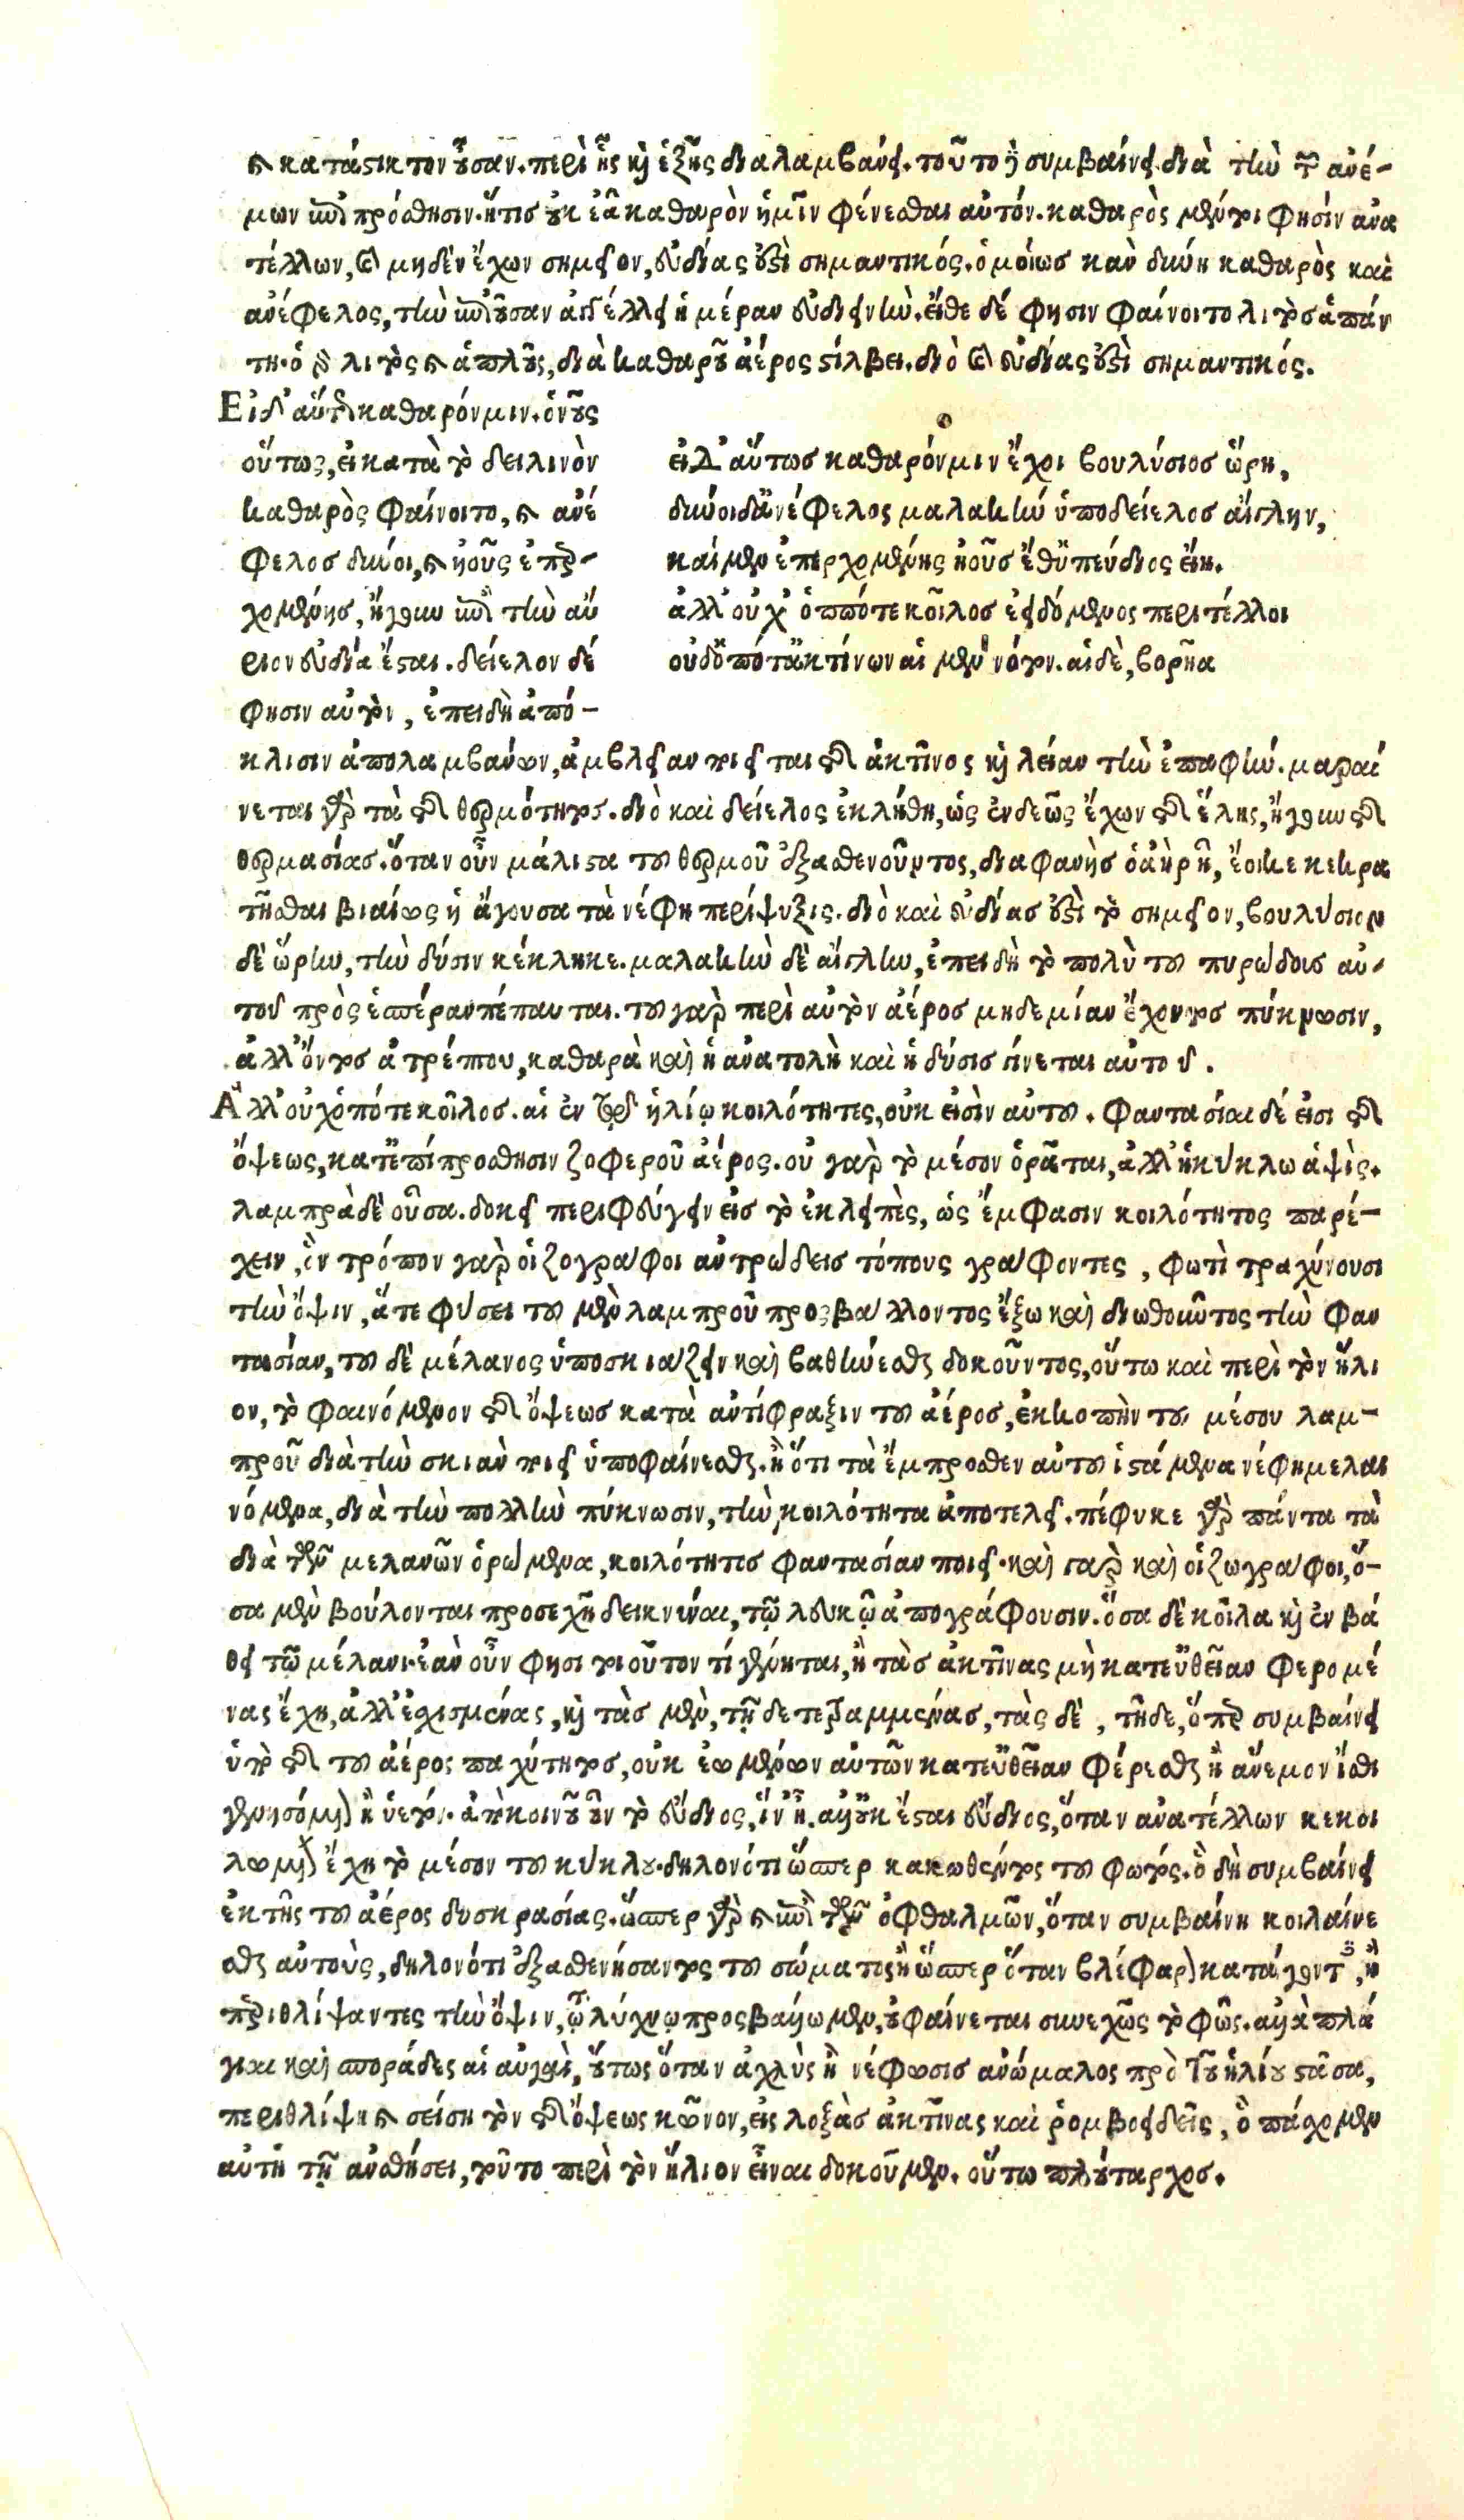 καὶ κατάστικτον οὖσαν. περὶ ἧς καὶ ἑξῆς διαλαμβάνει. τοῦτο δὲ συμβαίνει διὰ τὴν τῶν ἀνέ-
μων ἐπιπρόσθησιν. ἥτις οὐκ ἐᾶ καθαρὸν ἡμῖν φένεσθαι αὐτόν. καθαρὸς μέντοι φησὶν ἀνα
τέλλων, καὶ μηδὲν ἔχων σημεῖον, εὐδίας ἐστὶ σημαντικός. ὁμοίως κἂν δύνῃ καθαρὸς καὶ
ἀνέφελος, τὴν ἐπιοῦσαν ἀπαγγέλλει ἡμέραν εὐδεινήν. εἴθε δέ φησιν φαίνοιτο λιτὸς ἁπάν
τῃ. ὁ γὰρ λιτὸς καὶ ἁπλοῦς, διὰ καθαροῦ ἀέρος στίλβει. διὸ καὶ εὐδίας ἐστὶ σημαντικός.
Εἰ δ' αὕτως καθαρόν μιν. ὁ νοῦς
οὕτως, εἰ κατὰ τὸ δειλινὸν
καθαρὸς φαίνοιτο, καὶ ἀνέ
φελος δύνοι, καὶ ἠοῦς ἐπερ-
χομένης, ἤγουν ἐπὶ τὴν αὔ
ριον εὐδία ἔσται. δείελον δέ
φησιν αὐτὸν, ἐπειδὴ ἀπό-
εἰ δ' αὕτως καθαρόν μιν ἔχοι βουλύσιος ὥρη,
δύνοι δ' ἀνέφελος μαλακὴν ὑποδείελος αἴγλην,
καί μεν ἐπερχομένης ἠοῦς ἔθ' ὑπεύδιος εἴη.
ἀλλ' οὐχ ὁππότε κοῖλος ἐειδόμενος περιτέλλοι
οὐδ' ὁπότ' ἀκτίνων αἱ μὲν νότον. αἱ δὲ, βορῆα
κλισιν ἀπολαμβάνων, ἀμβλεῖαν ποιεῖται τῆς ἀκτῖνος καὶ λείαν τὴν ἐπαφήν. μαραί
νεται γὰρ τὰ τῆς θερμότητος. διὸ καὶ δείελος ἐκλήθη, ὡς ἐνδεῶς ἔχων τῆς ἕλης, ἤγουν τῆς
θερμασίας. ὅταν οὖν μάλιστα τοῦ θερμοῦ ἐξασθενοῦντος, διαφανὴς ὁ ἀὴρ ᾖ, ἔοικε κεκρα
τῆσθαι βιαίως ἡ ἄγουσα τὰ νέφη περίψυξις. διὸ καὶ εὐδίας ἐστὶ τὸ σημεῖον, βουλύσιον
δὲ ὥρην, τὴν δύσιν κέκληκε. μαλακὴν δὲ αἴγλην, ἐπειδὴ τὸ πολὺ τοῦ πυρώδους αὐ-
τοῦ πρὸς ἑσπέραν πέπαυται. τοῦ γὰρ περὶ αὐτὸν ἀέρος μηδεμίαν ἔχοντος πύκνωσιν,
ἀλλ' ὄντος ἀτρέπτου, καθαρὰ καὶ ἡ ἀνατολὴ καὶ ἡ δύσις γίνεται αὐτοῦ.
Ἀλλ' οὐχ ὁπότε κοῖλος. αἱ ἐν τῷ ἡλίῳ κοιλότητες, οὐκ εἰσὶν αὐτοῦ. φαντασίαι δέ εἰσι τῆς
ὄψεως, κατ' ἐπιπρόσθησιν ζοφεροῦ ἀέρος. οὐ γὰρ τὸ μέσον ὁρᾶται, ἀλλ' ἡ κύκλω ἁψὶς.
λαμπρὰ δὲ οὖσα. δοκεῖ περιφεύγειν εἰς τὸ ἐκλειπὲς, ὡς ἔμφασιν κοιλότητος παρέ-
χειν, ὃν τρόπον γὰρ οἱ ζογράφοι ἀντρώδεις τόπους γράφοντες, φωτὶ τραχύνουσι
τὴν ὄψιν, ἅτε φύσει τοῦ μὲν λαμπροῦ προσβάλλοντος ἔξω καὶ διωθοῦντος τὴν φαν
τασίαν, τοῦ δὲ μέλανος ὑποσκιάζειν καὶ βαθύνεσθαι δοκοῦντος, οὕτω καὶ περὶ τὸν ἥλι
ον, τὸ φαινόμενον τῆς ὄψεως κατὰ ἀντίφραξιν τοῦ ἀέρος, ἐκκοπὴν τοῦ μέσου λαμ-
προῦ διὰ τὴν σκιὰν ποιεῖ ὑποφαίνεσθαι. ἢ ὅτι τὰ ἔμπροσθεν αὐτοῦ ἱστάμενα νέφη μελαι
νόμενα, διὰ τὴν πολλὴν πύκνωσιν, τὴν κοιλότητα ἀποτελεῖ. πέφυκε γὰρ πάντα τὰ
διὰ τῶν μελανῶν ὁρώμενα, κοιλότητος φαντασίαν ποιεῖ. καὶ γὰρ καὶ οἱ ζωγράφοι, ὅ-
σα μὲν βούλονται προσεχῆ δεικνύναι, τῷ λευκῷ ἀπογράφουσιν. ὅσα δὲ κοῖλα καὶ ἐν βά
θει τῷ μέλανι. ἐὰν οὖν φησι τοιοῦτον τί γένηται, ἢ τὰς ἀκτῖνας μὴ κατ' εὐθεῖαν φερομέ
νας ἔχῃ, ἀλλ' ἐσχισμένας, καὶ τὰς μὲν, τῇδε τεταμμένας, τὰς δὲ, τῇδε, ὅπερ συμβαίνει
ὑπὸ τῆς τοῦ ἀέρος παχύτητος, οὐκ ἐωμένων αὐτῶν κατ' εὐθεῖαν φέρεσθαι ἢ ἄνεμον ἴσθι
γενησόμενον ἢ ὑετόν. ἀπὸ κοινοῦ οὖν τὸ εὔδιος, ἵν' ᾖ. ἀλλ' οὐκ ἔσται εὔδιος, ὅταν ἀνατέλλων κεκοι
λωμένον ἔχῃ τὸ μέσον τοῦ κύκλου. δηλονότι ὥσπερ κακωθέντος τοῦ φωτός. ὃ δὴ συμβαίνει
ἐκ τῆς τοῦ ἀέρος δυσκρασίας. ὥσπερ γὰρ καὶ ἐπὶ τῶν ὀφθαλμῶν, ὅταν συμβαίνῃ κοιλαίνε
σθαι αὐτοὺς, δηλονότι ἐξασθενήσαντος τοῦ σώματος ἢ ὥσπερ ὅταν βλέφαρον κατάγοντες, ἢ
περιθλίψαντες τὴν ὄψιν, τῷ λύχνῳ προσβάλλωμεν, οὐ φαίνεται συνεχῶς τὸ φῶς. ἀλλὰ πλά
γιαι καὶ σποράδες αἱ αὐγαὶ, οὕτως ὅταν ἀχλὺς ἢ νέφωσις ἀνώμαλος πρὸ τοῦ ἡλίου στᾶσα,
περιθλίψῃ καὶ σείσῃ τὸν τῆς ὄψεως κῶνον, εἰς λοξὰς ἀκτῖνας καὶ ῥομβοειδεῖς, ὃ πάσχομεν
αὐτῇ τῇ αἰσθήσει, τοῦτο περὶ τὸν ἥλιον εἶναι δοκοῦμεν. οὕτω πλούταρχος.